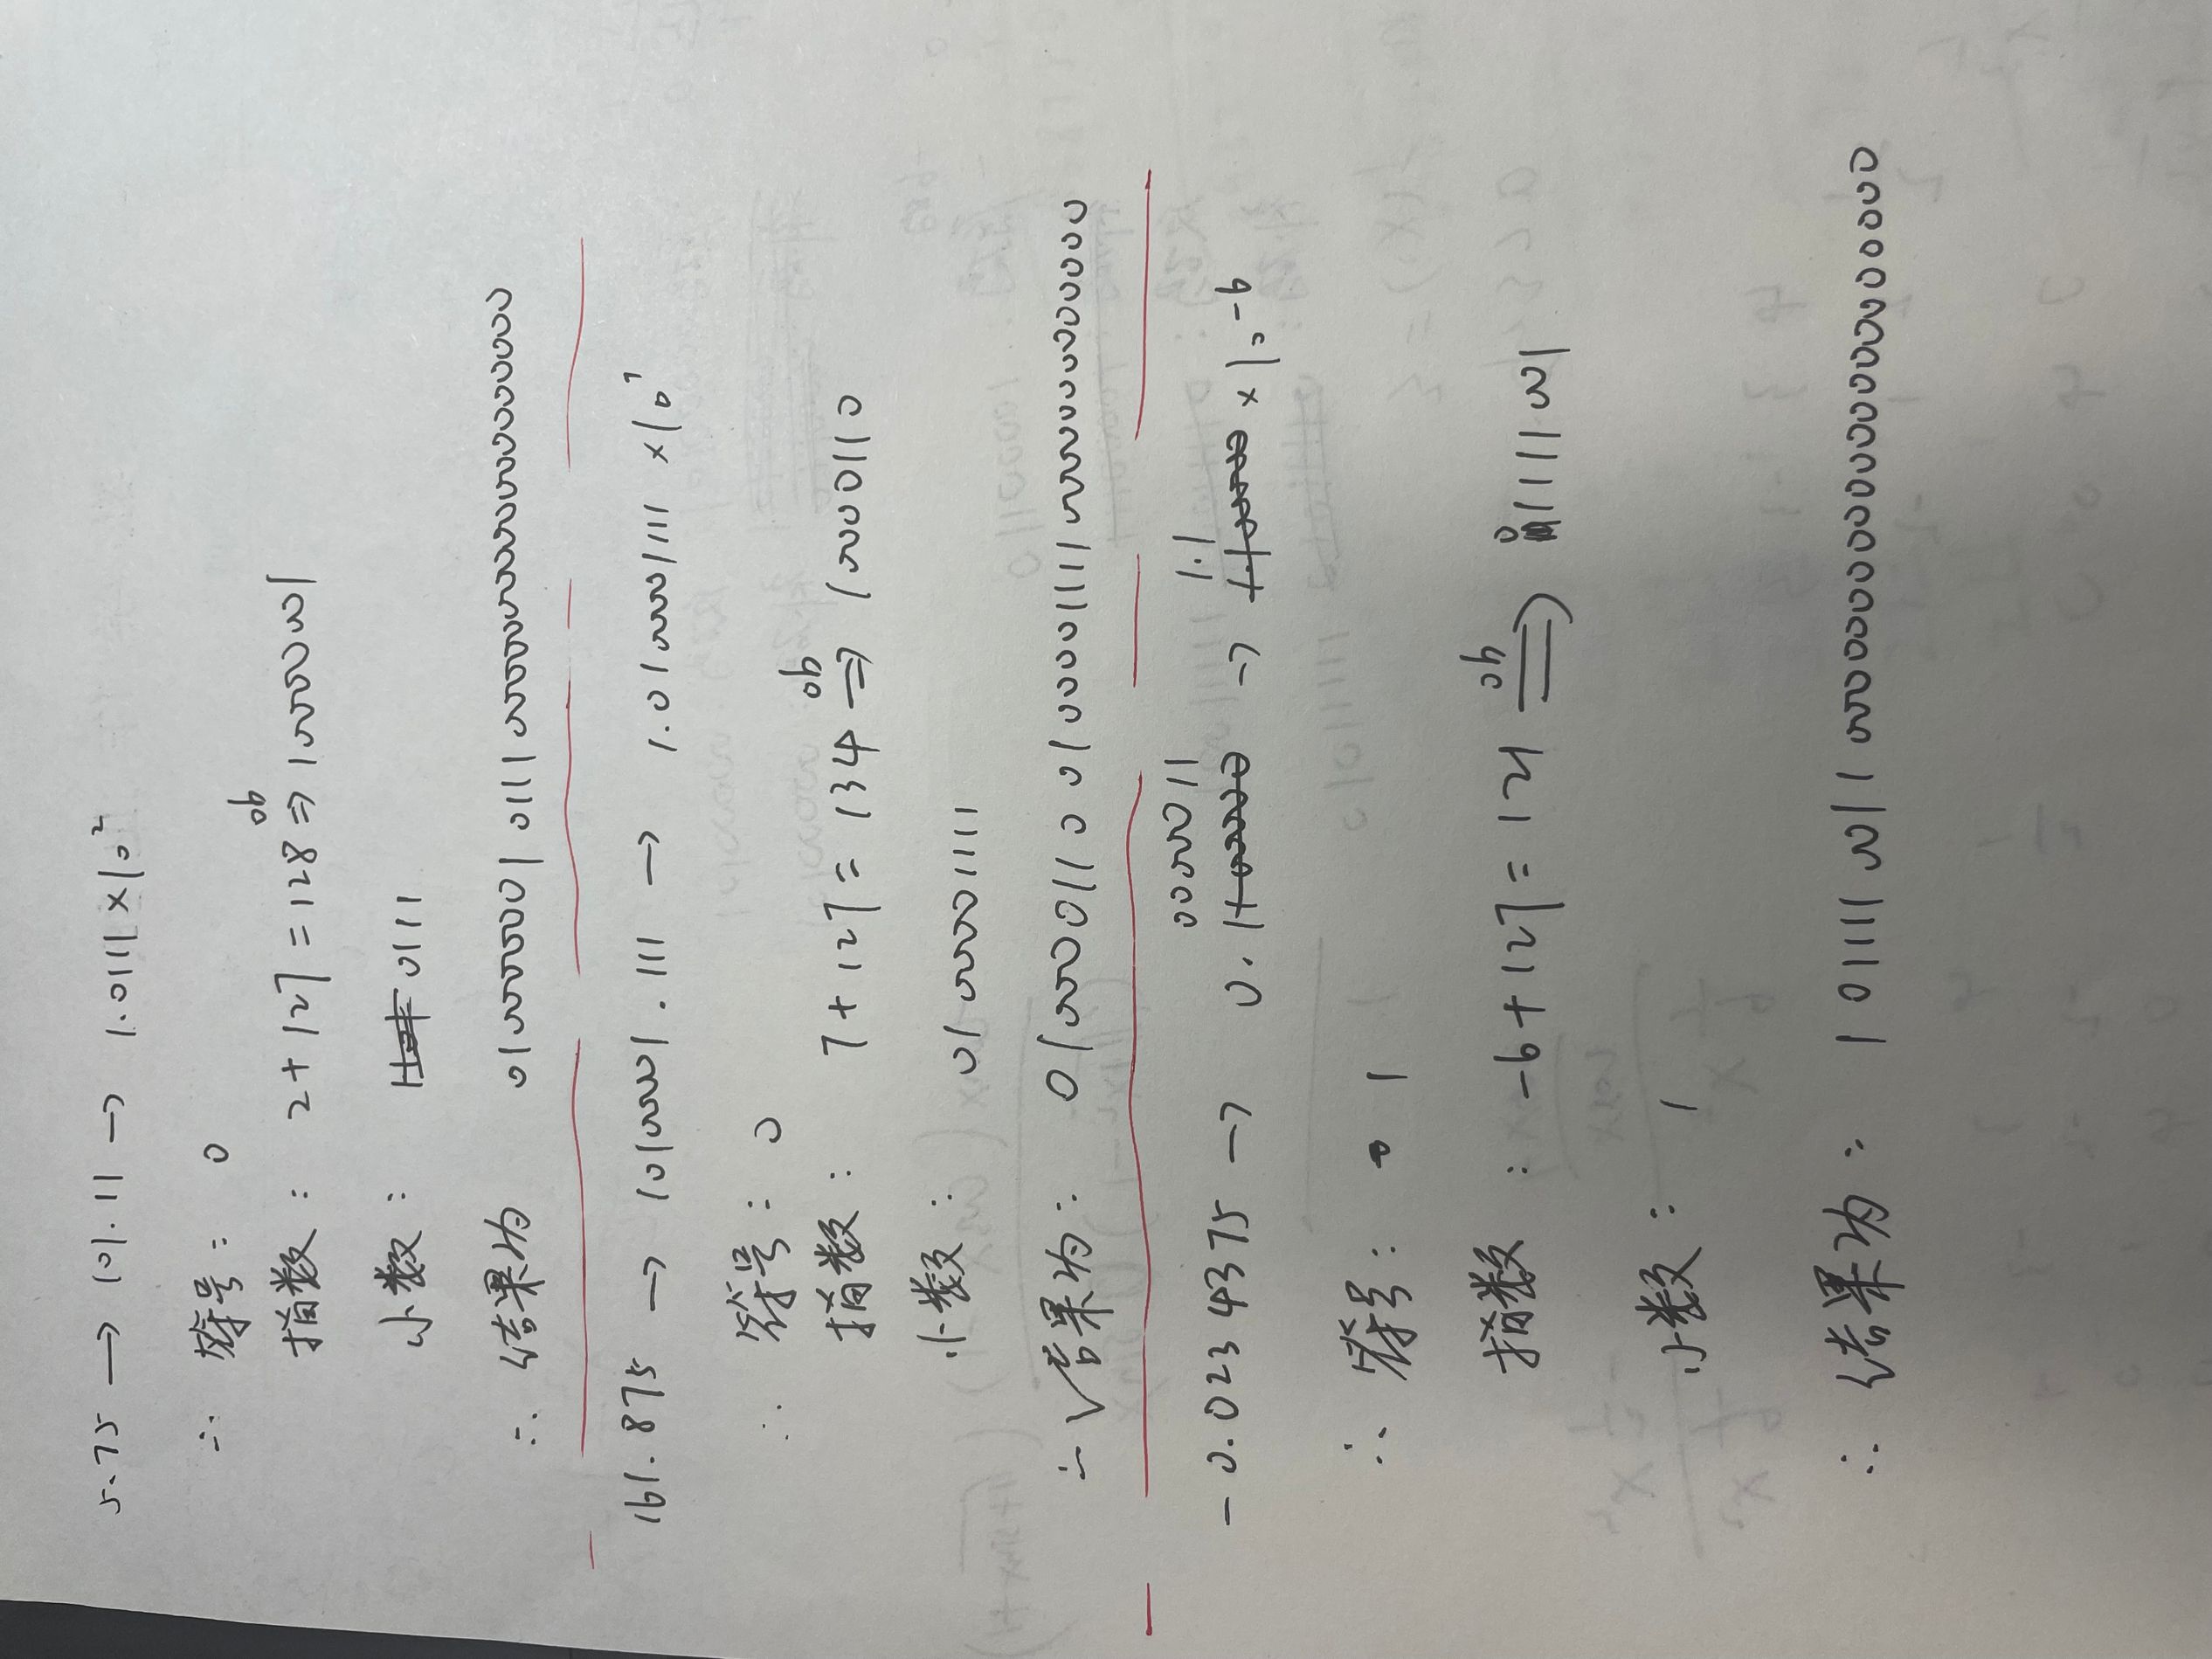 5.75 → 101.11 → 1.0111×10²
∴ 符号: 0
指数: 2+127=128 0b⇒ 10000001
小数: 0111
∴ 结果为 0 10000001 0111 0000000000000000000
161.875 → 10100001.111 → 1.0100001111 ×10⁷
∴ 符号: 0
指数: 7+127=134 0b⇒ 10000110
小数: 0100001111
∴ 结果为: 0 10000110 0100001111 0000000000000
-0.0234375 → 0.00000011 → 1.1 ×10^-6
∴ 符号: 1
指数: -6+127=121 0b⇒ 01111001
小数: 1
∴ 结果为: 1 01111001 1 0000000000000000000000